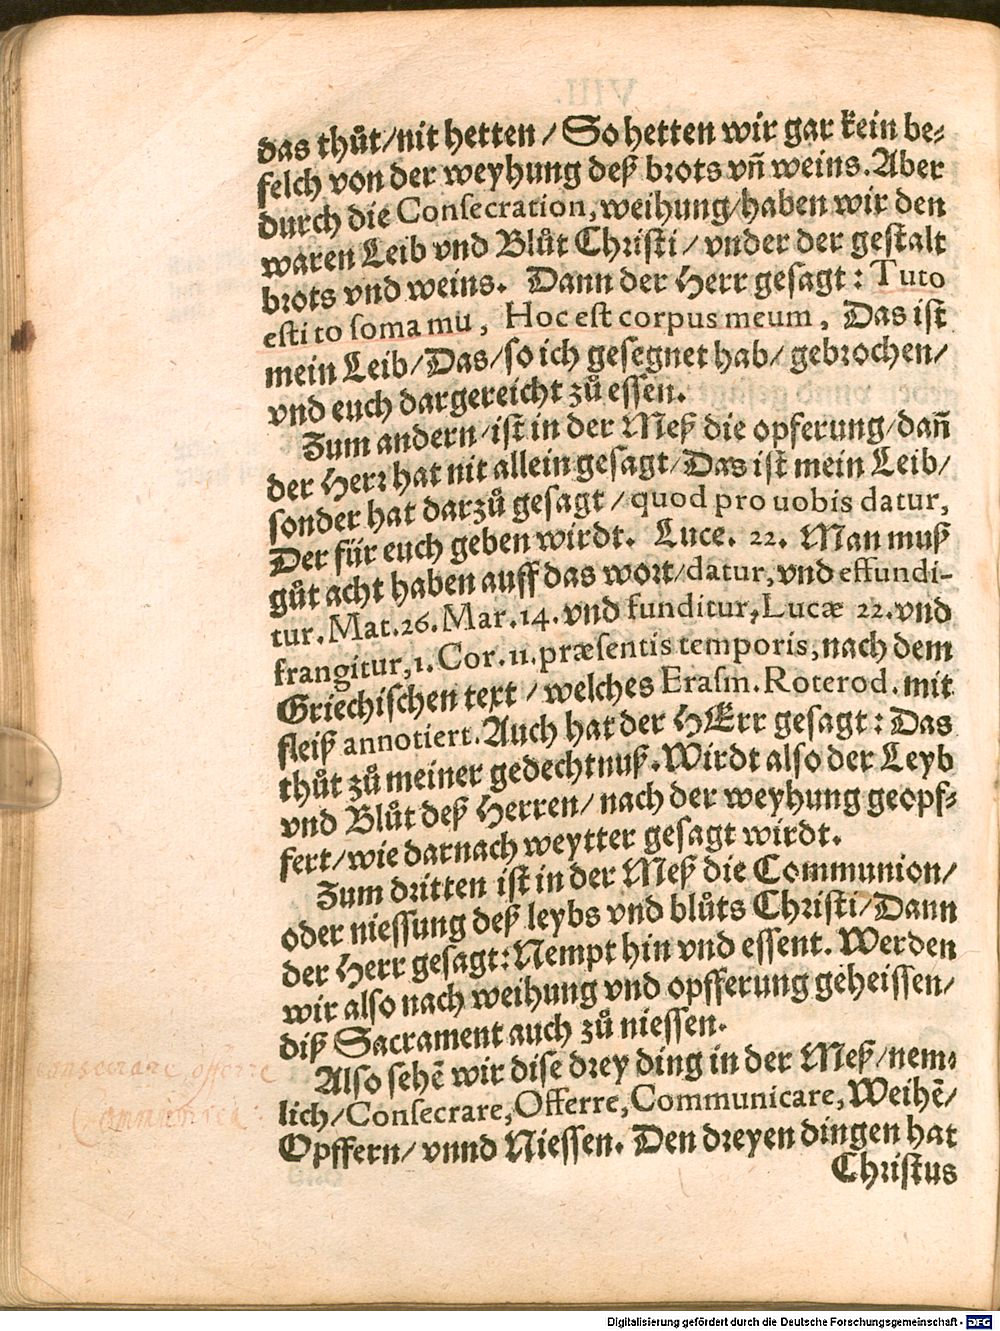 das thůt/nit hetten/So hetten wir gar kein be⸗
felch von der weyhung deß brots vñ weins. Aber
durch die Consecration, weihung/haben wir den
waren Leib vnd Blůt Christi/vnder der gestalt
brots vnd weins. Dann der Herr gesagt: Tuto
esti to soma mu, Hoc est corpus meum, Das ist
mein Leib/Das/so ich gesegnet hab/gebrochen/
vnd euch dargereicht zů essen.
Zum andern/ist in der Meß die opferung/dañ
der Herr hat nit allein gesagt/Das ist mein Leib/
sonder hat darzů gesagt/quod pro uobis datur,
Der für euch geben wirdt. Luce. 22. Man muß
gůt acht haben auff das wort/datur, vnd effundi-
tur. Mat. 26. Mar. 14. vnd funditur, Lucæ 22. vnd
frangitur, 1. Cor. 11. præsentis temporis, nach dem
Griechischen text/welches Erasm. Roterod. mit
fleiß annotiert. Auch hat der HErr gesagt: Das
thůt zů meiner gedechtnuß. Wirdt also der Leyb
vnd Blůt deß Herren/nach der weyhung geopf⸗
fert/wie darnach weytter gesagt wirdt.
Zum dritten ist in der Meß die Communion/
oder niessung deß leybs vnd blůts Christi/Dann
der Herr gesagt: Nempt hin vnd essent. Werden
wir also nach weihung vnd opfferung geheissen/
diß Sacrament auch zů niessen.
Also sehẽ wir dise drey ding in der Meß/nem⸗
lich/Consecrare, Offerre, Communicare, Weihẽ/
Opffern/vnnd Niessen. Den dreyen dingen hat
Christus
consecrare offerre
Digitalisierung gefördert durch die Deutsche Forschungsgemeinschaft - DFG